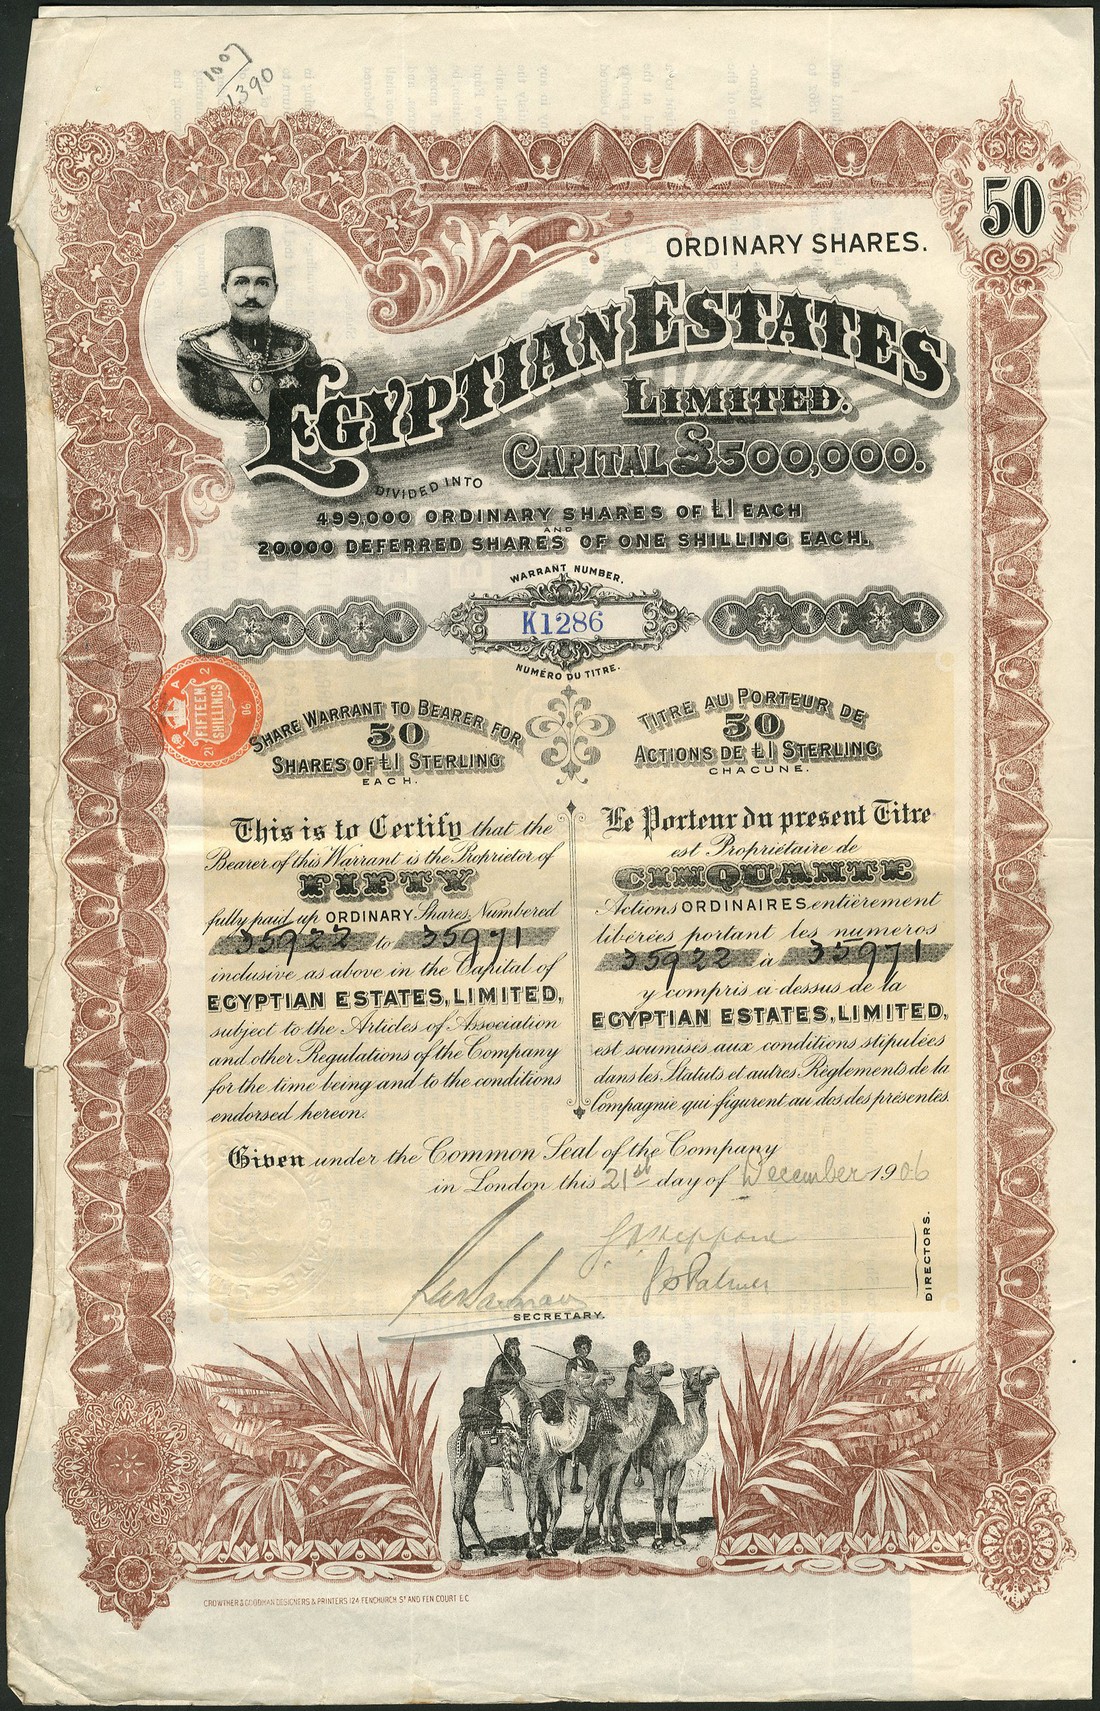 1007
1390
50
ORDINARY SHARES.
EGYPTIAN ESTATES
LIMITED.
CAPITAL £500,000.
DIVIDED INTO
499,000 ORDINARY SHARES OF £1 EACH
AND
20,000 DEFERRED SHARES OF ONE SHILLING EACH.
WARRANT NUMBER.
K1286
NUMÉRO DU TITRE.
FIFTEEN
SHILLINGS
A
2
21
06
SHARE WARRANT TO BEARER FOR
50
SHARES OF £1 STERLING
EACH.
This is to Certify that the
Bearer of this Warrant is the Proprietor of
FIFTY
fully paid up ORDINARY Shares, Numbered
35922 to 35971
inclusive as above in the Capital of
EGYPTIAN ESTATES, LIMITED,
subject to the Articles of Association
and other Regulations of the Company
for the time being and to the conditions
endorsed hereon.
TITRE AU PORTEUR DE
50
ACTIONS DE £1 STERLING
CHACUNE.
Le Porteur du present Titre
est Propriétaire de
CINQUANTE
Actions ORDINAIRES entièrement
libérées portant les numeros
35922 à 35971
y compris ci-dessus de la
EGYPTIAN ESTATES, LIMITED,
est soumises aux conditions stipulées
dans les Statuts et autres Règlements de la
Compagnie qui figurent au dos des présentes.
Given under the Common Seal of the Company
in London this 21st day of December 1906
DIRECTORS.
SECRETARY.
CROWTHER & GOODMAN DESIGNERS & PRINTERS 124 FENCHURCH ST AND FEN COURT E.C